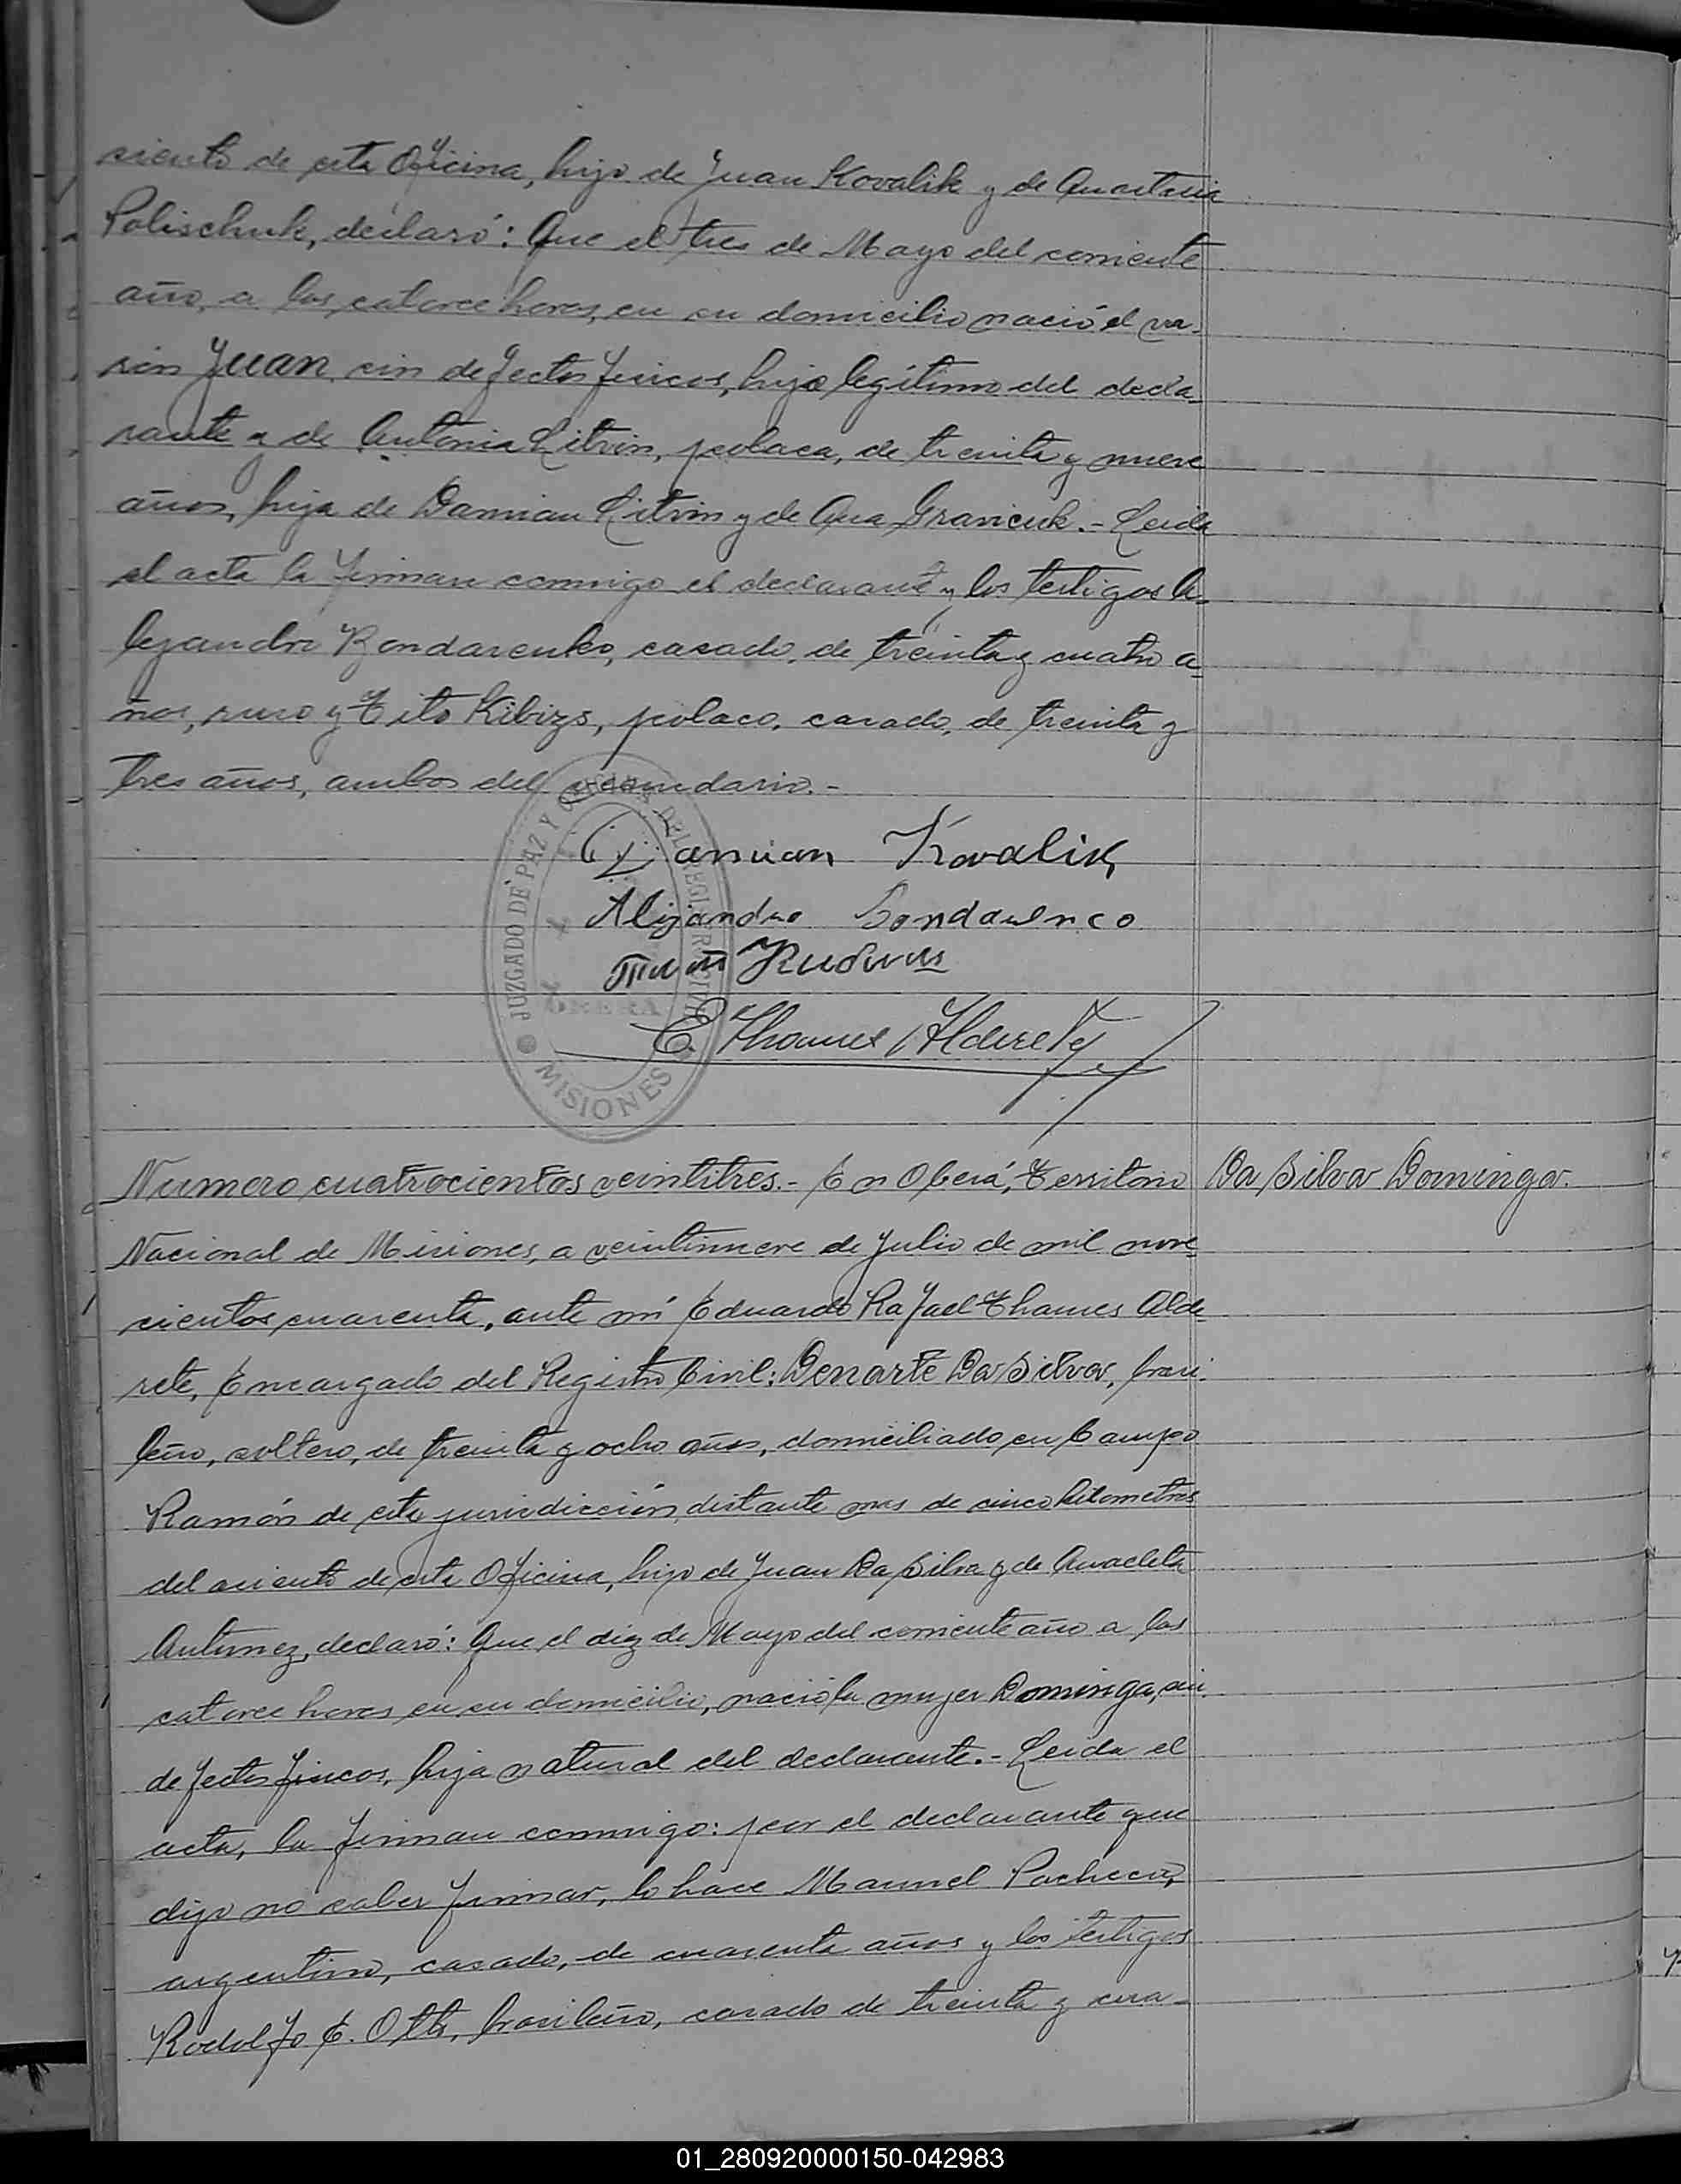 siento de esta Oficina, hijo de Juan Kovalik y de Anastacia
Polischuk, declaró: Que el tres de Mayo del corriente
año, a las catorce horas, en su domicilio nació el va-
rón Juan, sin defectos fisicos, hijo legítimo del decla-
rante y de Antonia Litvin, polaca, de treinta y nueve
años, hija de Damian Litvin y de Ana Gravicuk.- Leida
el acta la firman conmigo el declarante y los testigos A-
lejandro Bondarenko, casado, de treinta y cuatro a-
ños, ruso y Tito Kibizs, polaco, casado, de treinta y
tres años, ambos del vecindario.-
Damian Kovalik
Alejandro Bondarenco
E. Thames Alderete
JUZGADO DE PAZ Y OFICINA DEL REGISTRO CIVIL
OBERA
MISIONES
Numero cuatrocientos veintitres.- En Oberá, Territorio
Da Silva Dominga.
Nacional de Misiones, a veintinueve de Julio de mil nove-
cientos cuarenta, ante mí Eduardo Rafael Thames Alde-
rete, Encargado del Registro Civil: Denarte Da Silva, brasi-
leño, soltero, de treinta y ocho años, domiciliado en Campo
Ramón de esta jurisdicción, distante mas de cinco kilometros
del asiento de esta Oficina, hijo de Juan Da Silva y de Anacleta
Antunez, declaró: Que el diez de Mayo del corriente año a las
catorce horas en su domicilio, nació la mujer Dominga, sin
defectos fisicos, hija natural del declarante.- Leida el
acta, la firman conmigo: por el declarante que
dijo no saber firmar, lo hace Manuel Pacheco,
argentino, casado, de cuarenta años y los testigos
Rodolfo E. Oth, brasileño, casado de treinta y cua-
01_280920000150-042983